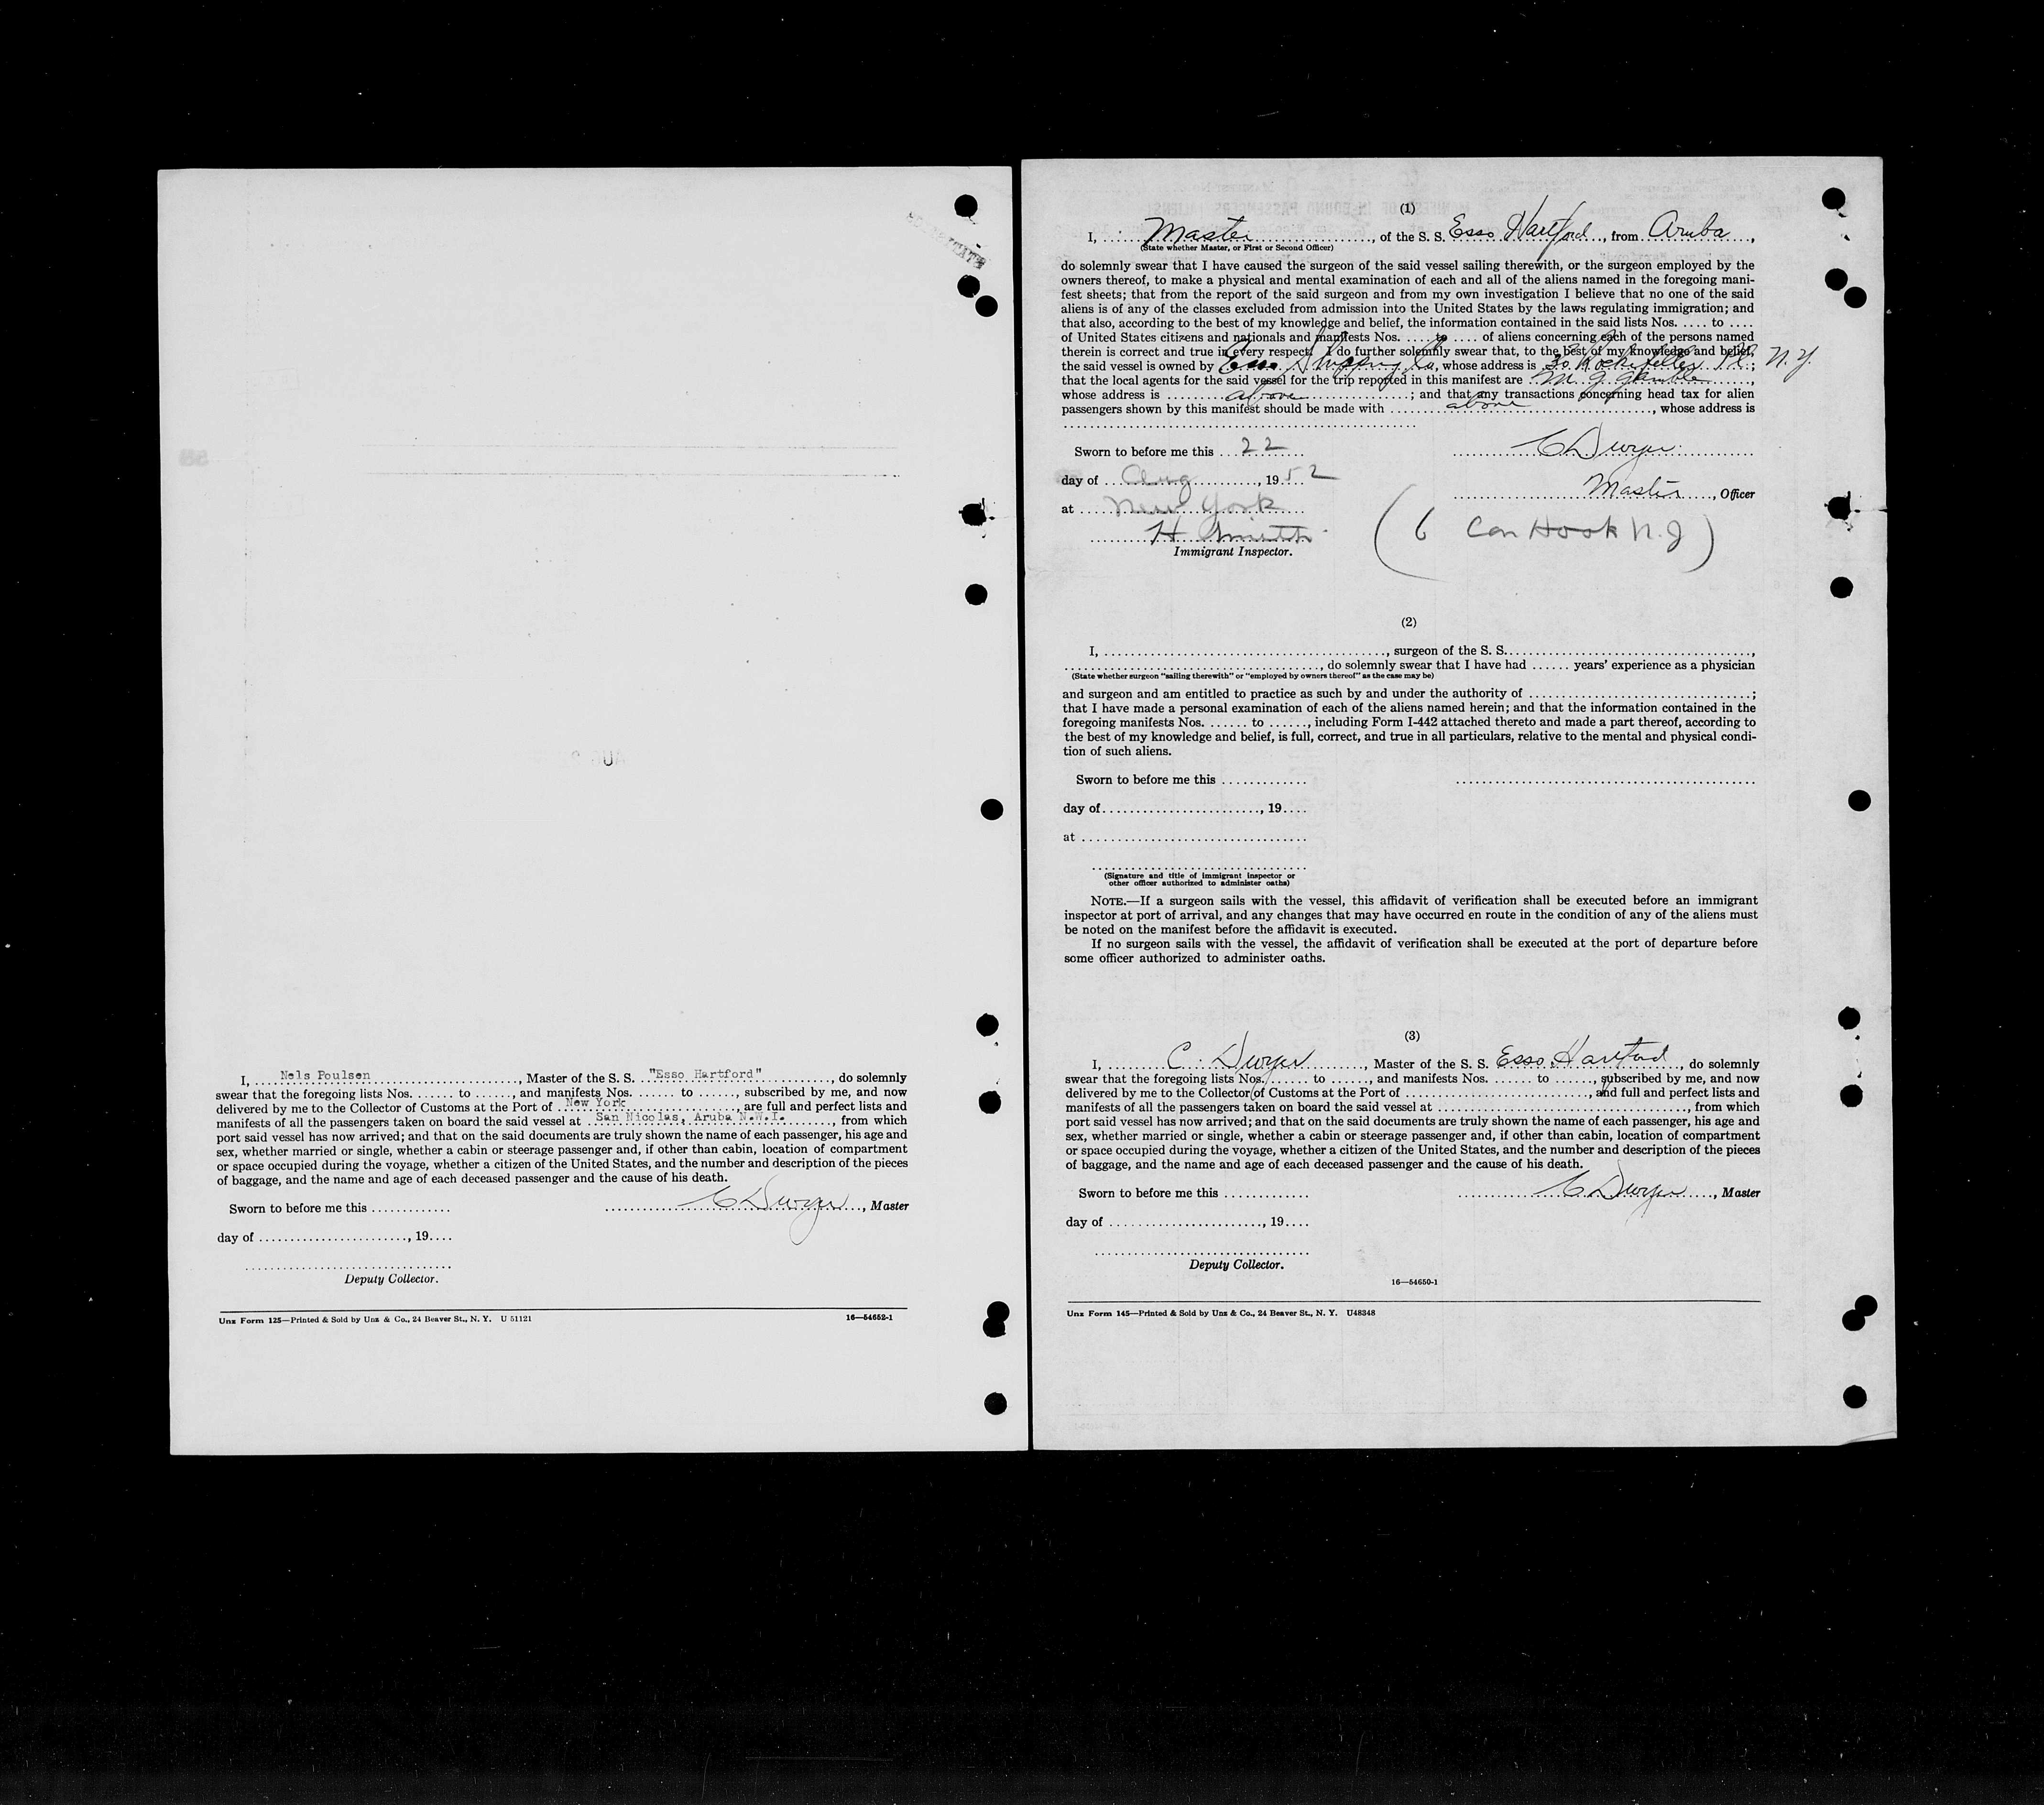 I, Nels Poulsen, Master of the S. S. "Esso Hartford", do solemnly
swear that the foregoing lists Nos. ...... to ......, and manifests Nos. ...... to ......, subscribed by me, and now
delivered by me to the Collector of Customs at the Port of New York, are full and perfect lists and
manifests of all the passengers taken on board the said vessel at San Nicolas, Aruba N.W.I., from which
port said vessel has now arrived; and that on the said documents are truly shown the name of each passenger, his age and
sex, whether married or single, whether a cabin or steerage passenger and, if other than cabin, location of compartment
or space occupied during the voyage, whether a citizen of the United States, and the number and description of the pieces
of baggage, and the name and age of each deceased passenger and the cause of his death.
Sworn to before me this ............ C Dwyer, Master
day of ........................, 19....
Deputy Collector.
Unz Form 125—Printed & Sold by Unz & Co., 24 Beaver St., N. Y. U 51121 16—54652-1
(1)
I, Master, of the S. S. Esso Hartford, from Aruba,
(State whether Master, or First or Second Officer)
do solemnly swear that I have caused the surgeon of the said vessel sailing therewith, or the surgeon employed by the
owners thereof, to make a physical and mental examination of each and all of the aliens named in the foregoing mani-
fest sheets; that from the report of the said surgeon and from my own investigation I believe that no one of the said
aliens is of any of the classes excluded from admission into the United States by the laws regulating immigration; and
that also, according to the best of my knowledge and belief, the information contained in the said lists Nos. .... to ....
of United States citizens and nationals and manifests Nos. .... to .... of aliens concerning each of the persons named
therein is correct and true in every respect. I do further solemnly swear that, to the best of my knowledge and belief,
the said vessel is owned by Esso Shipping Co, whose address is 30 Rockefeller Pl. N.Y.;
that the local agents for the said vessel for the trip reported in this manifest are M. G. Gamble,
whose address is above; and that any transactions concerning head tax for alien
passengers shown by this manifest should be made with above, whose address is
Sworn to before me this 22 C Dwyer
day of Aug, 1952
Master, Officer
at New York
H Smith
Immigrant Inspector.
( Con Hook N.J )
(2)
I, ........................, surgeon of the S. S. ........................,
........................, do solemnly swear that I have had ...... years' experience as a physician
(State whether surgeon "sailing therewith" or "employed by owners thereof" as the case may be)
and surgeon and am entitled to practice as such by and under the authority of ........................;
that I have made a personal examination of each of the aliens named herein; and that the information contained in the
foregoing manifests Nos. ...... to ......, including Form I-442 attached thereto and made a part thereof, according to
the best of my knowledge and belief, is full, correct, and true in all particulars, relative to the mental and physical condi-
tion of such aliens.
Sworn to before me this ............
day of ........................, 19....
at ........................
(Signature and title of immigrant inspector or
other officer authorized to administer oaths)
NOTE.—If a surgeon sails with the vessel, this affidavit of verification shall be executed before an immigrant
inspector at port of arrival, and any changes that may have occurred en route in the condition of any of the aliens must
be noted on the manifest before the affidavit is executed.
If no surgeon sails with the vessel, the affidavit of verification shall be executed at the port of departure before
some officer authorized to administer oaths.
(3)
I, C. Dwyer, Master of the S. S. Esso Hartford, do solemnly
swear that the foregoing lists Nos. ...... to ......, and manifests Nos. ...... to ......, subscribed by me, and now
delivered by me to the Collector of Customs at the Port of ........................, and full and perfect lists and
manifests of all the passengers taken on board the said vessel at ........................, from which
port said vessel has now arrived; and that on the said documents are truly shown the name of each passenger, his age and
sex, whether married or single, whether a cabin or steerage passenger and, if other than cabin, location of compartment
or space occupied during the voyage, whether a citizen of the United States, and the number and description of the pieces
of baggage, and the name and age of each deceased passenger and the cause of his death.
Sworn to before me this ............ C Dwyer, Master
day of ........................, 19....
Deputy Collector.
16—54650-1
Unz Form 145—Printed & Sold by Unz & Co., 24 Beaver St., N. Y. U48348